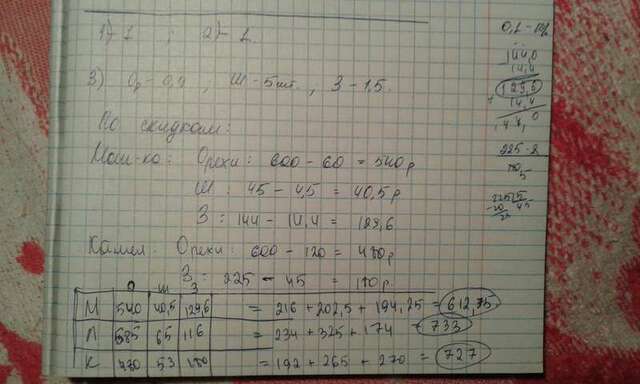 1) - 1 ; 2) - 1
3) Ор - 0,4 , Ш - 5шт. , З - 1,5.
По скидкам:
Мош-ка: Орехи: 600 - 60 = 540 р
Ш : 45 - 4,5 = 40,5 р
З : 144 - 14,4 = 129,6
Камел. Орехи: 600 - 120 = 480 р
З : 225 - 45 = 180 р.
О Ш З
М 540 40,5 129,6 = 216 + 202,5 + 194,25 = 612,75
Л 585 65 116 = 234 + 325 + 174 = 733
К 480 53 180 = 192 + 265 + 270 = 727
144,0
14,4
129,6
14,4
144,0
225
225 5
20 45